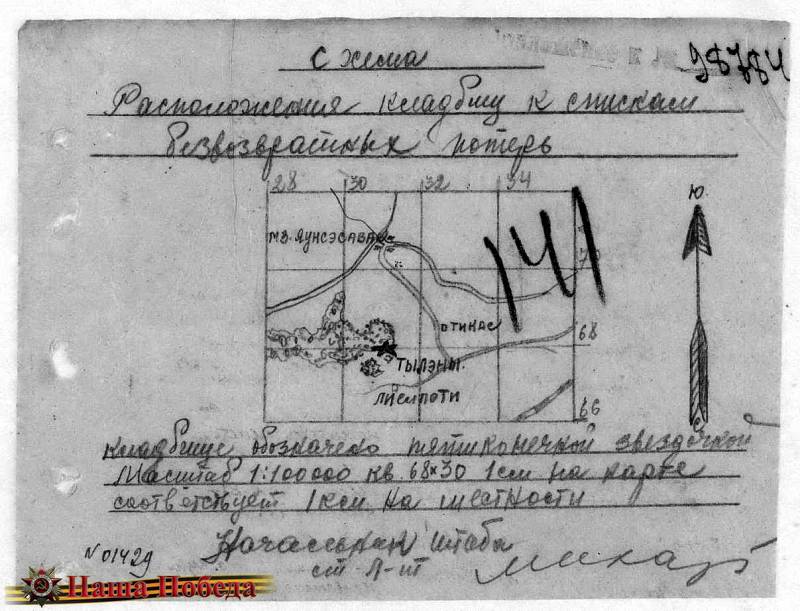 98784
Схема
Расположения кладбищ к спискам
безвозвратных потерь
28 30 32 34
Ю.
МЗ. ЯУНСЭСАВА
141
70
ОТИКАС
68
ТЫЛЭНЫ.
ЛИСМПОТИ
66
кладбище обозначено пятиконечной звездочкой
Масштаб 1:100000 кв. 68×30 1см на карте
соответствует 1км на местности
Начальник штаба
ст л-нт
N 01429
Наша Победа